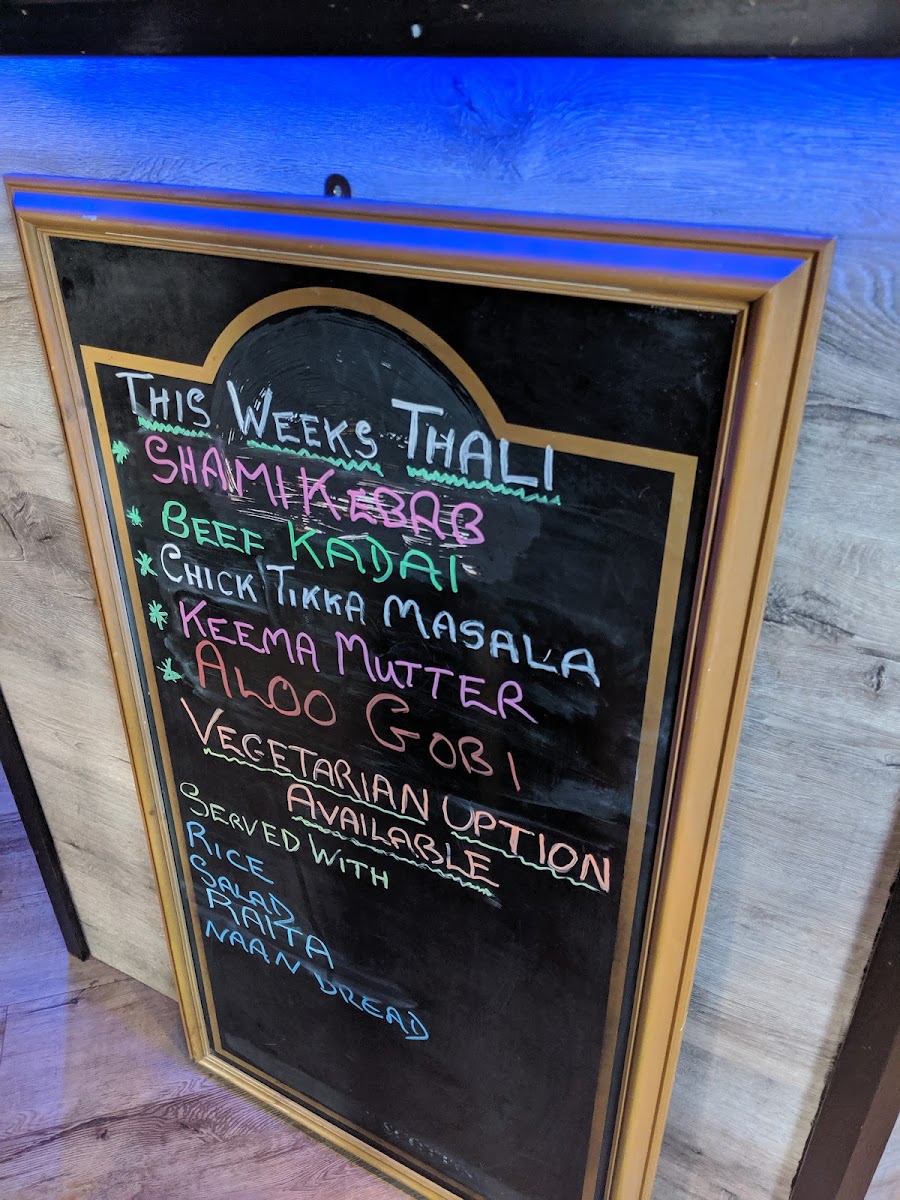 THIS WEEKS THALI
* SHAMI KEBAB
* BEEF KADAI
* CHICK TIKKA MASALA
* KEEMA MUTTER
* ALOO GOBI
VEGETARIAN OPTION
AVAILABLE
SERVED WITH
RICE
SALAD
RAITA
NAAN BREAD